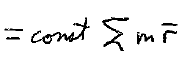 = const Σ m r̄